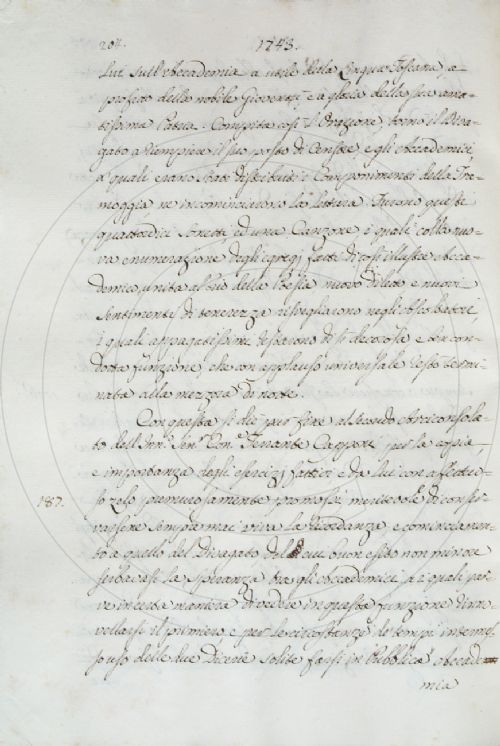 204.
1743.
Lui sull'Accademia a utile della Lingua Toscana, a
profitto della nobile Gioventù, e a gloria della sua ama-
tissima Patria. Compita così l'Orazione tornò il Diva-
gato a riempiere il suo posto di Censore, e gli Accademici,
a quali erano stati distribuiti i Componimenti della Tra-
moggia ne incominciarono la lettura. Furono questi
quattordici Sonetti ed una Canzone, i quali colla nuo-
va enumerazione degli egregj fatti di così illustre Acca-
demico, unita al brio della Poesia nuovo diletto e nuovi
sentimenti di tenerezza risvegliarono negli Ascoltatori,
i quali appagatissimi restarono di sì decorosa e ben con-
dotta funzione, che con applauso universale restò termi-
nata alla mezz'ora di notte.
Con questa si diè pur fine al secondo Arciconsola-
to dell' Inn. Sen. Con. Tenante Capponi per la copia,
e importanza degli esercizj fattivi e da lui con affettuo-
so zelo premurosamente promossi, meritevole di conser-
187.
varsene sempre mai viva la ricordanza e cominciamen-
to a quello del Divagato del cui buon esito non minore
serbavasi la speranza tra gli Accademici, i quali par-
ve in certa maniera di vedere in questa funzione rinno-
vellarsi il primiero, e per le circostanze de tempi interrot-
to uso delle due Dicerie solite farsi in Pubblica Accade-
mia